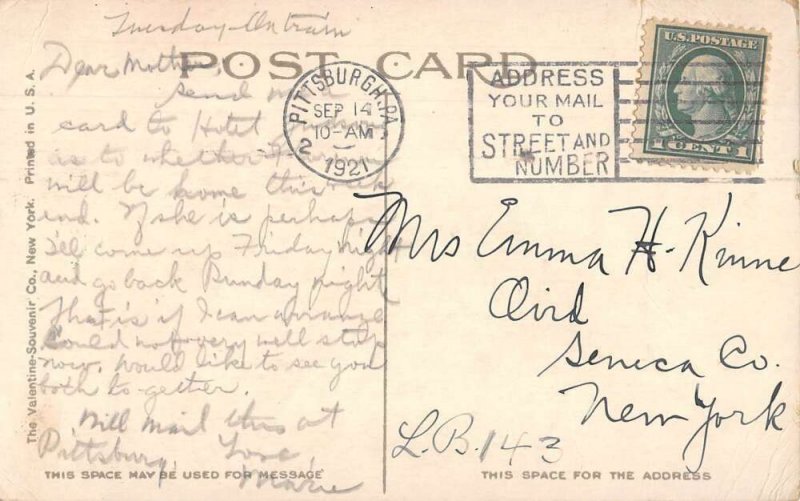 Tuesday - On train
POST CARD
Dear Mother,
Send me a
card to Hotel
as to whether
will be home this week
end. If she is perhaps
I'll come up Friday night
and go back Sunday night
That is if I can arrange
Could not very well stop
now. Would like to see you
both to-gether.
Will mail this at
Pittsburg. Love,
Marie
THIS SPACE MAY BE USED FOR MESSAGE
The Valentine-Souvenir Co., New York. Printed in U. S. A.
PITTSBURGH, PA.
SEP 14
10-AM
1921
2
ADDRESS
YOUR MAIL
TO
STREET AND
NUMBER
U.S. POSTAGE
1 CENT 1
Mrs Emma H. Kinne
Ovid
Seneca Co.
New York
L.B. 143
THIS SPACE FOR THE ADDRESS